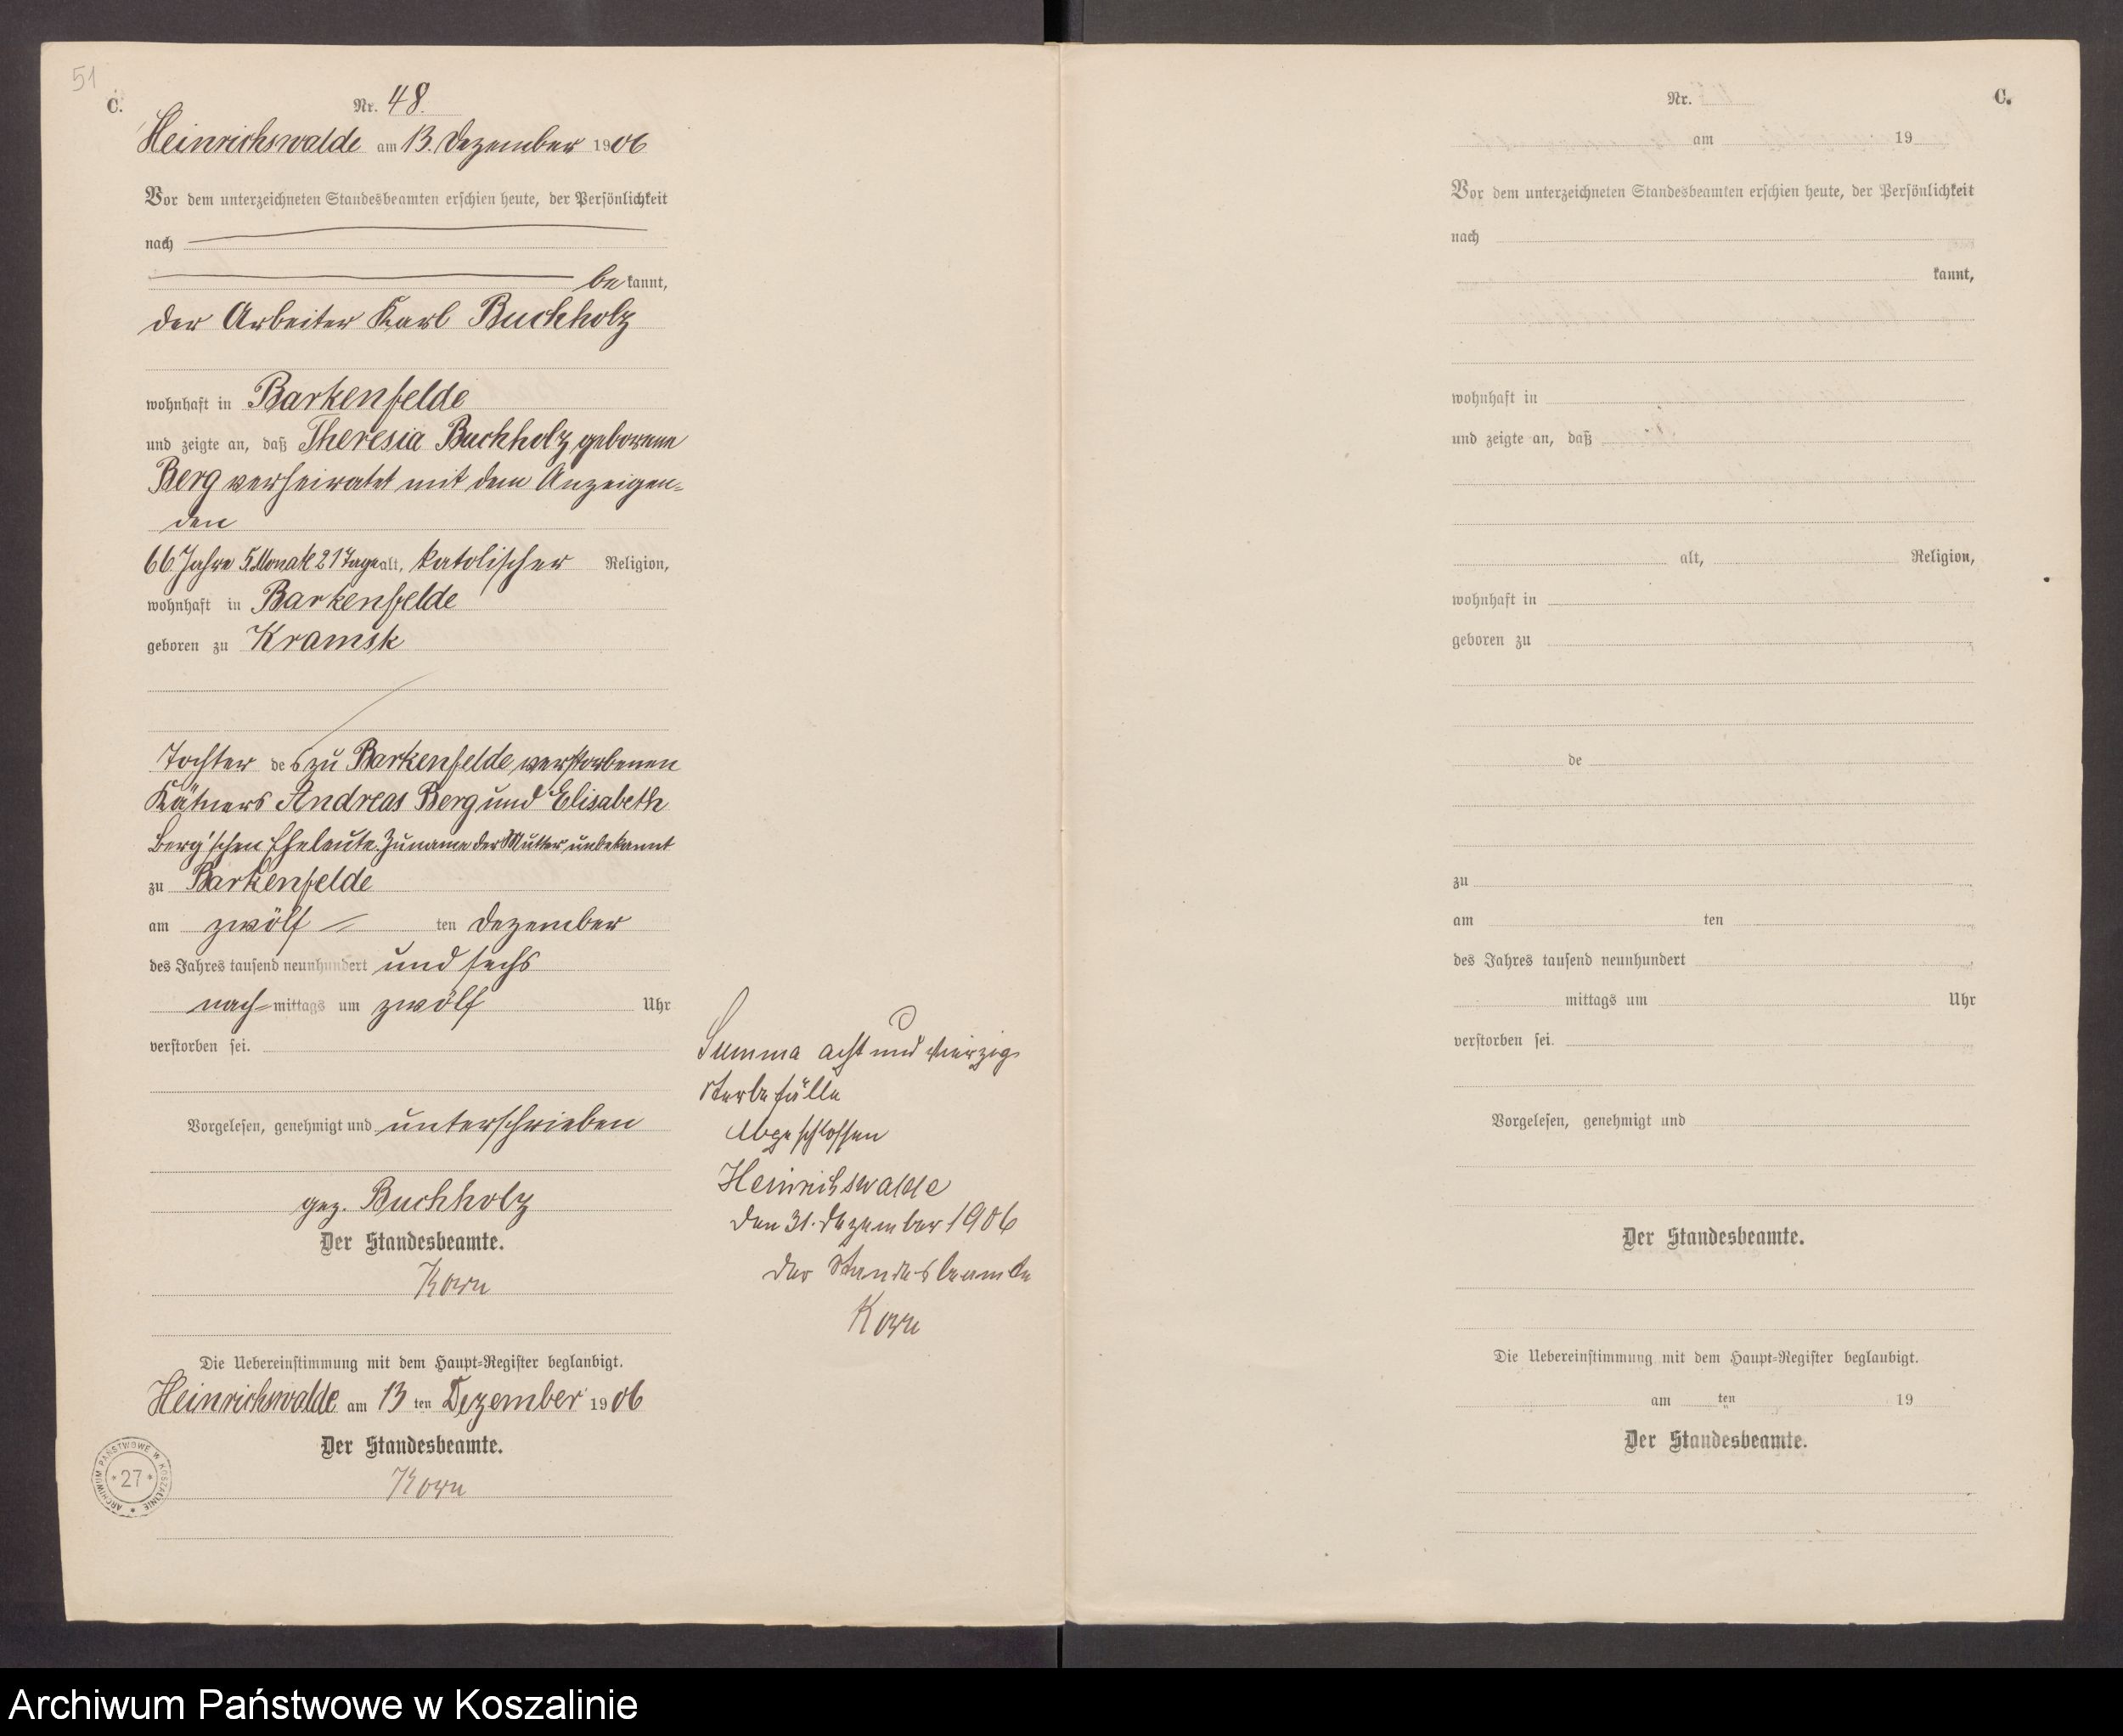 51
C.
Nr. 48.
Heinrichswalde am 13. Dezember 1906
Vor dem unterzeichneten Standesbeamten erschien heute, der Persönlichkeit
nach
be kannt,
der Arbeiter Karl Buchholz
wohnhaft in Barkenfelde
und zeigte an, daß Theresia Buchholz geborene
Berg verheiratet mit dem Anzeigen=
den
66 Jahre 5 Monate 21 Tage alt, katolischer Religion,
wohnhaft in Barkenfelde
geboren zu Kramsk
Tochter des zu Barkenfelde verstorbenen
Kätners Andreas Berg und Elisabeth
Berg'schen Eheleute. Zuname der Mutter unbekannt
zu Barkenfelde
am zwölf ten Dezember
des Jahres tausend neunhundert und sechs
nach=mittags um zwölf Uhr
verstorben sei.
Vorgelesen, genehmigt und unterschrieben
gez. Buchholz
Der Standesbeamte.
Korn
Die Uebereinstimmung mit dem Haupt=Register beglaubigt.
Heinrichswalde am 13 ten Dezember 1906
Der Standesbeamte.
Korn
ARCHIWUM PAŃSTWOWE W KOSZALINIE
* 27 *
Summa acht und vierzig
Sterbefälle
Abgeschlossen
Heinrichswalde
den 31. Dezember 1906
Der Standesbeamte
Korn
Nr.
C.
am 19
Vor dem unterzeichneten Standesbeamten erschien heute, der Persönlichkeit
nach
kannt,
wohnhaft in
und zeigte an, daß
alt, Religion,
wohnhaft in
geboren zu
de
zu
am ten
des Jahres tausend neunhundert
mittags um Uhr
verstorben sei.
Vorgelesen, genehmigt und
Der Standesbeamte.
Die Uebereinstimmung mit dem Haupt=Register beglaubigt.
am ten 19
Der Standesbeamte.
Archiwum Państwowe w Koszalinie